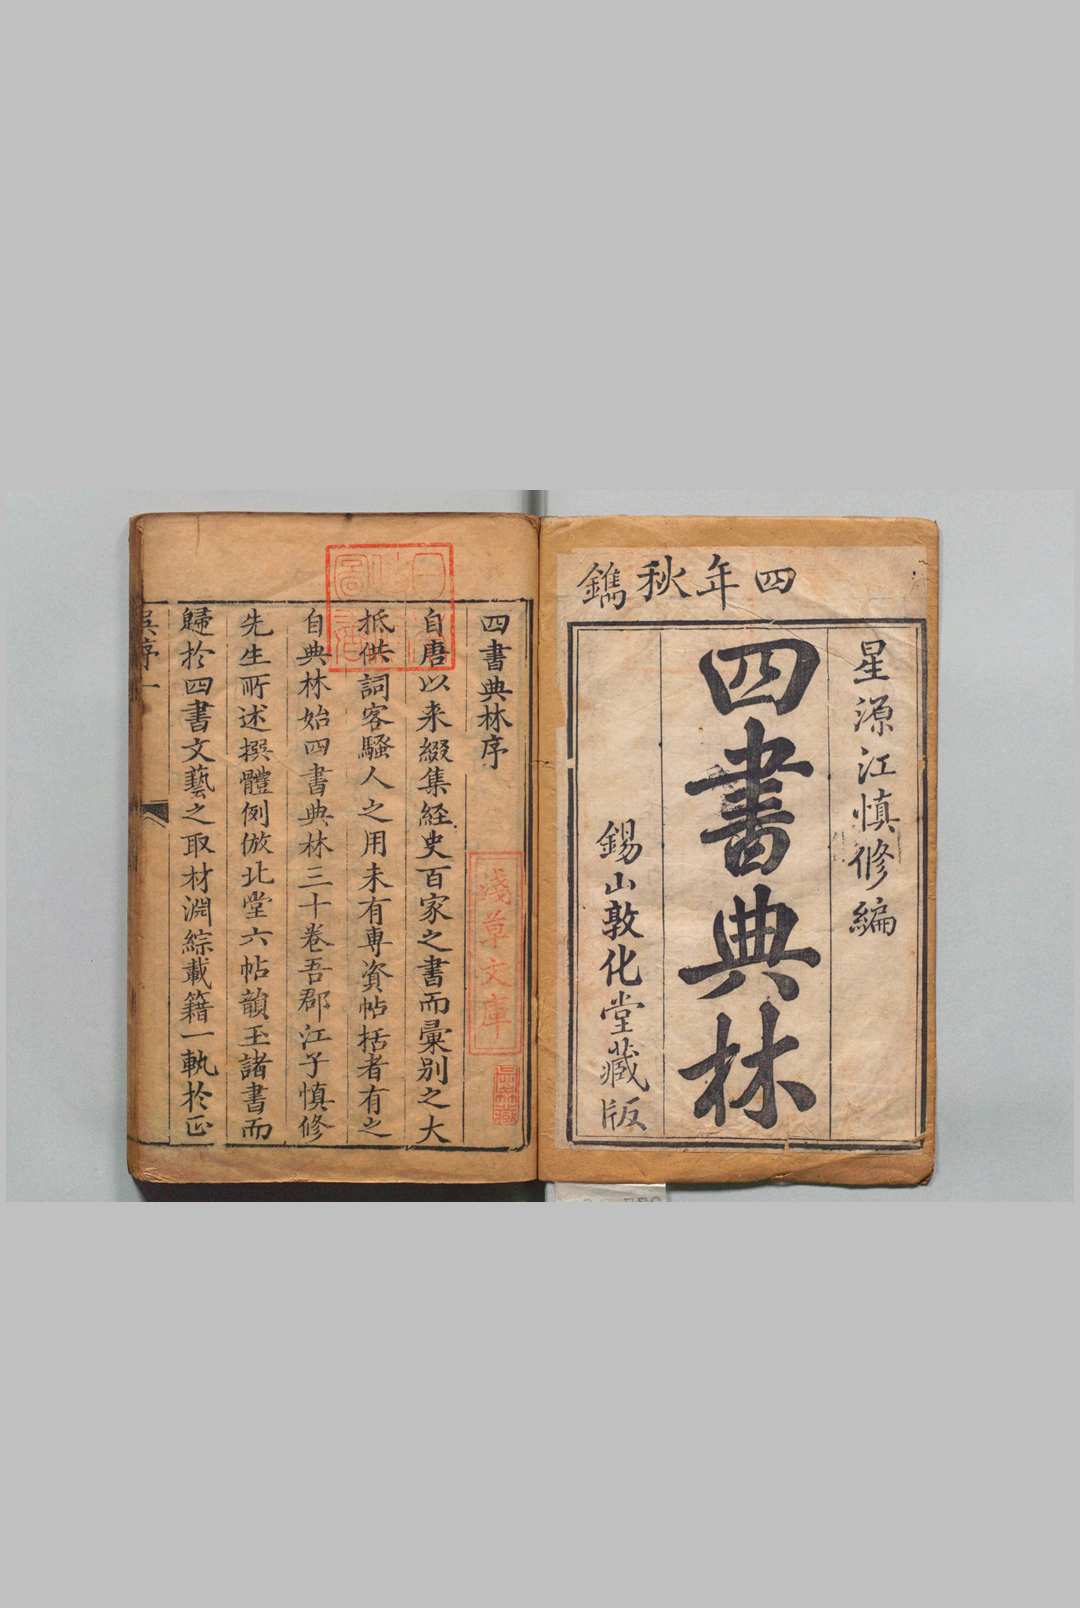 四年秋鐫
星源江慎修編
四書典林
錫山敦化堂藏版
四書典林序
自唐以来綴集經史百家之書而彙别之大
抵供詞客騷人之用未有専資帖括者有之
自典林始四書典林三十卷吾郡江子慎修
先生所述撰體例倣北堂六帖韻玉諸書而
歸於四書文藝之取材淵綜載籍一軌於正
吳序一
淺草文庫